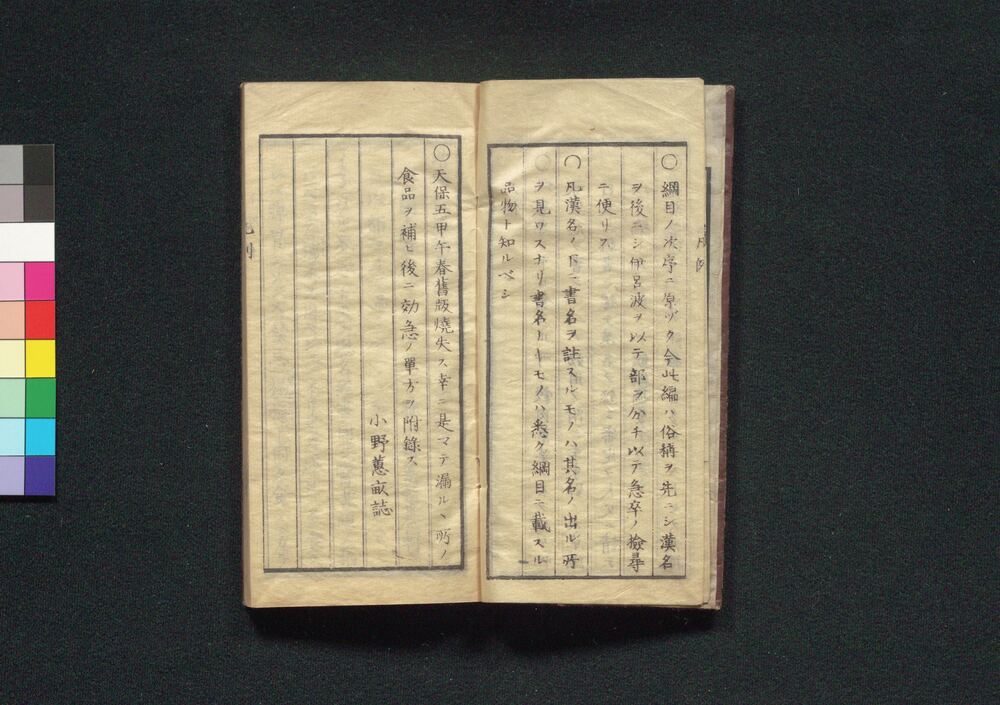 ○綱目ノ次序ニ原ヅク今此編ハ俗稱ヲ先ニシ漢名
ヲ後ニシ伊呂波ヲ以テ部ヲ分チ以テ急卒ノ撿尋
ニ便リス
○凡漢名ノ下ニ書名ヲ註スルモノハ其名ノ出ル所
ヲ見ワスナリ書名ナキモノハ悉ク綱目ニ載スル
品物ト知ルベシ
○天保五甲午春舊版燒失ス幸ニ是マテ漏ルヽ所ノ
食品ヲ補ヒ後ニ効急ノ單方ヲ附錄ス
小野蕙畝誌